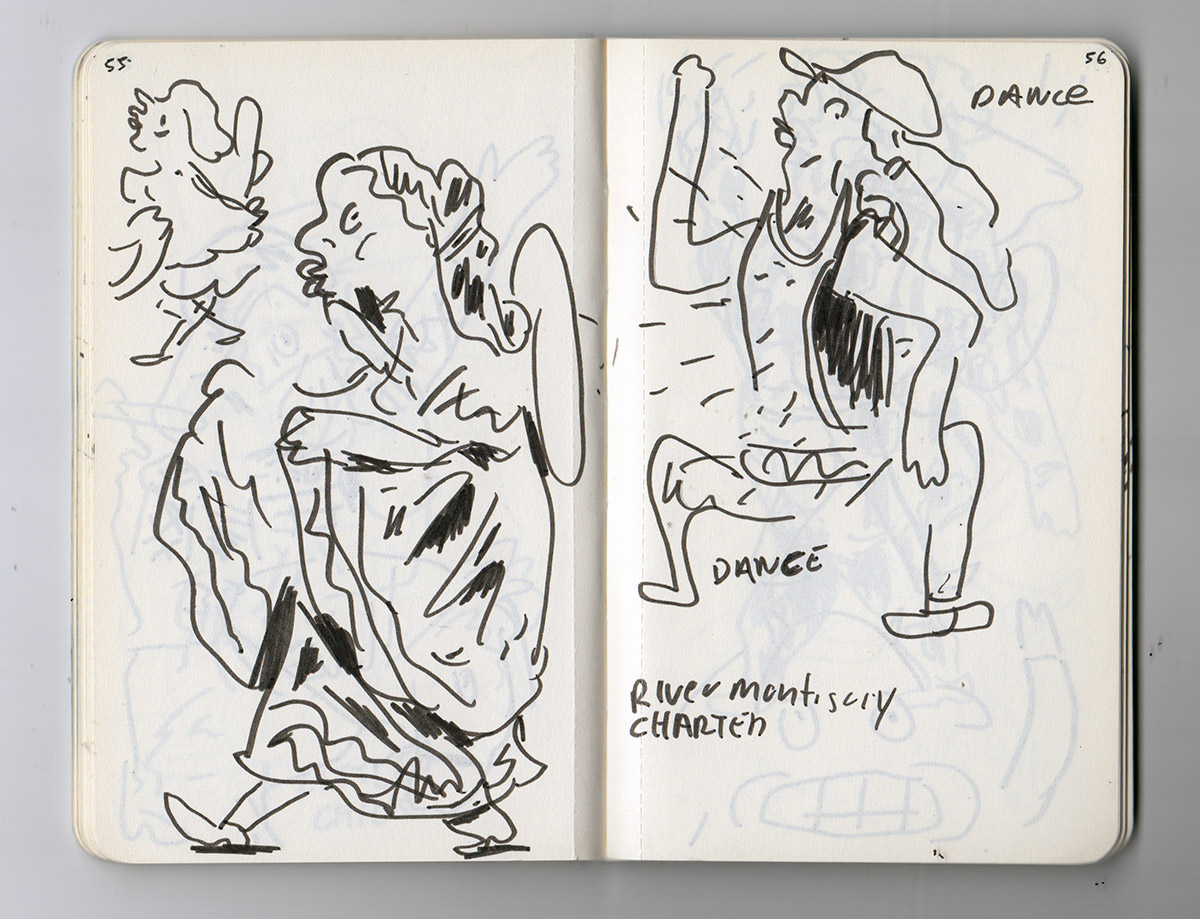 55
56
DANCE
DANCE
RIVER montiscury
CHARTER